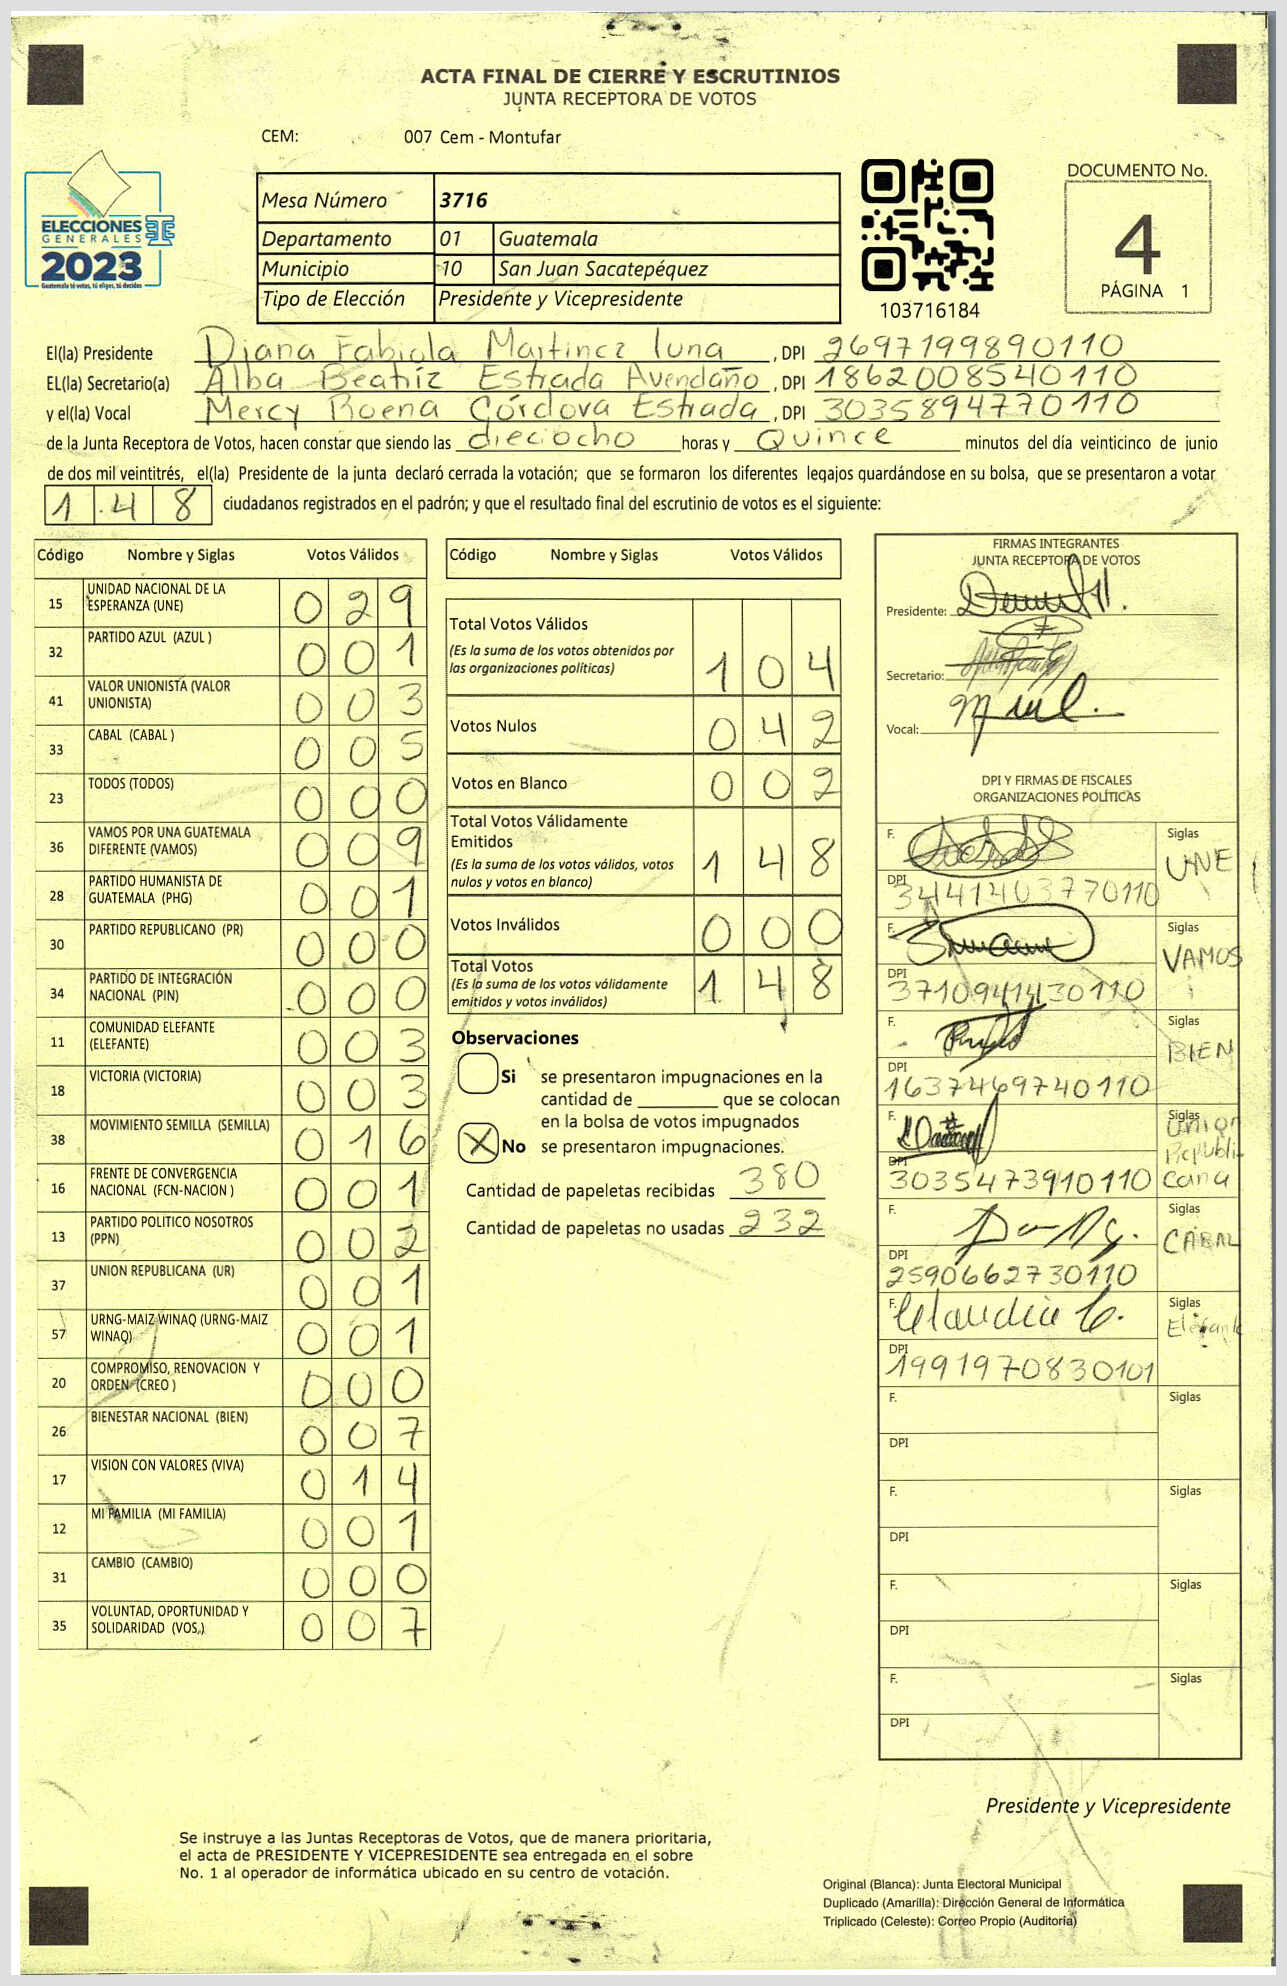 ACTA FINAL DE CIERRE Y ESCRUTINIOS
JUNTA RECEPTORA DE VOTOS
CEM: 007 Cem - Montufar
ELECCIONES
GENERALES
2023
Guatemala tú votas, tú eliges, tú decides
Mesa Número 3716
Departamento 01 Guatemala
Municipio 10 San Juan Sacatepéquez
Tipo de Elección Presidente y Vicepresidente
103716184
DOCUMENTO No.
4
PÁGINA 1
El(la) Presidente Diana Fabiola Martinez luna , DPI 2697199890110
EL(la) Secretario(a) Alba Beatríz Estrada Avendaño , DPI 1862008540110
y el(la) Vocal Mercy Córdova Estrada , DPI 3035894770110
de la Junta Receptora de Votos, hacen constar que siendo las dieciocho horas y Quince minutos del día veinticinco de junio
de dos mil veintitrés, el(la) Presidente de la junta declaró cerrada la votación; que se formaron los diferentes legajos guardándose en su bolsa, que se presentaron a votar
1 4 8 ciudadanos registrados en el padrón; y que el resultado final del escrutinio de votos es el siguiente:
Código Nombre y Siglas Votos Válidos
15 UNIDAD NACIONAL DE LA ESPERANZA (UNE) 0 2 9
32 PARTIDO AZUL (AZUL ) 0 0 1
41 VALOR UNIONISTA (VALOR UNIONISTA) 0 0 3
33 CABAL (CABAL ) 0 0 5
23 TODOS (TODOS) 0 0 0
36 VAMOS POR UNA GUATEMALA DIFERENTE (VAMOS) 0 0 9
28 PARTIDO HUMANISTA DE GUATEMALA (PHG) 0 0 1
30 PARTIDO REPUBLICANO (PR) 0 0 0
34 PARTIDO DE INTEGRACIÓN NACIONAL (PIN) 0 0 0
11 COMUNIDAD ELEFANTE (ELEFANTE) 0 0 3
18 VICTORIA (VICTORIA) 0 0 3
38 MOVIMIENTO SEMILLA (SEMILLA) 0 1 6
16 FRENTE DE CONVERGENCIA NACIONAL (FCN-NACION ) 0 0 1
13 PARTIDO POLITICO NOSOTROS (PPN) 0 0 2
37 UNION REPUBLICANA (UR) 0 0 1
57 URNG-MAIZ WINAQ (URNG-MAIZ WINAQ) 0 0 1
20 COMPROMISO, RENOVACION Y ORDEN (CREO ) 0 0 0
26 BIENESTAR NACIONAL (BIEN) 0 0 7
17 VISION CON VALORES (VIVA) 0 1 4
12 MI FAMILIA (MI FAMILIA) 0 0 1
31 CAMBIO (CAMBIO) 0 0 0
35 VOLUNTAD, OPORTUNIDAD Y SOLIDARIDAD (VOS,) 0 0 7
Código Nombre y Siglas Votos Válidos
Total Votos Válidos 1 0 4
(Es la suma de los votos obtenidos por
las organizaciones políticas)
Votos Nulos 0 4 2
Votos en Blanco 0 0 2
Total Votos Válidamente
Emitidos 1 4 8
(Es la suma de los votos válidos, votos
nulos y votos en blanco)
Votos Inválidos 0 0 0
Total Votos 1 4 8
(Es la suma de los votos válidamente
emitidos y votos inválidos)
Observaciones
Si se presentaron impugnaciones en la
cantidad de ________ que se colocan
en la bolsa de votos impugnados
X No se presentaron impugnaciones.
Cantidad de papeletas recibidas 380
Cantidad de papeletas no usadas 232
FIRMAS INTEGRANTES
JUNTA RECEPTORA DE VOTOS
Presidente:
Secretario:
Vocal:
DPI Y FIRMAS DE FISCALES
ORGANIZACIONES POLÍTICAS
F. Siglas UNE
DPI 3441403770110
F. Siglas VAMOS
DPI 3710941430110
F. Siglas BIEN
DPI 1637469740110
F. Siglas Union Republicana
DPI 3035473910110
F. Siglas CABAL
DPI 2590662730110
F. Claudia C. Siglas Elefante
DPI 1991970830101
F. Siglas
DPI
F. Siglas
DPI
F. Siglas
DPI
F. Siglas
DPI
Presidente y Vicepresidente
Se instruye a las Juntas Receptoras de Votos, que de manera prioritaria,
el acta de PRESIDENTE Y VICEPRESIDENTE sea entregada en el sobre
No. 1 al operador de informática ubicado en su centro de votación.
Original (Blanca): Junta Electoral Municipal
Duplicado (Amarilla): Dirección General de Informática
Triplicado (Celeste): Correo Propio (Auditoría)